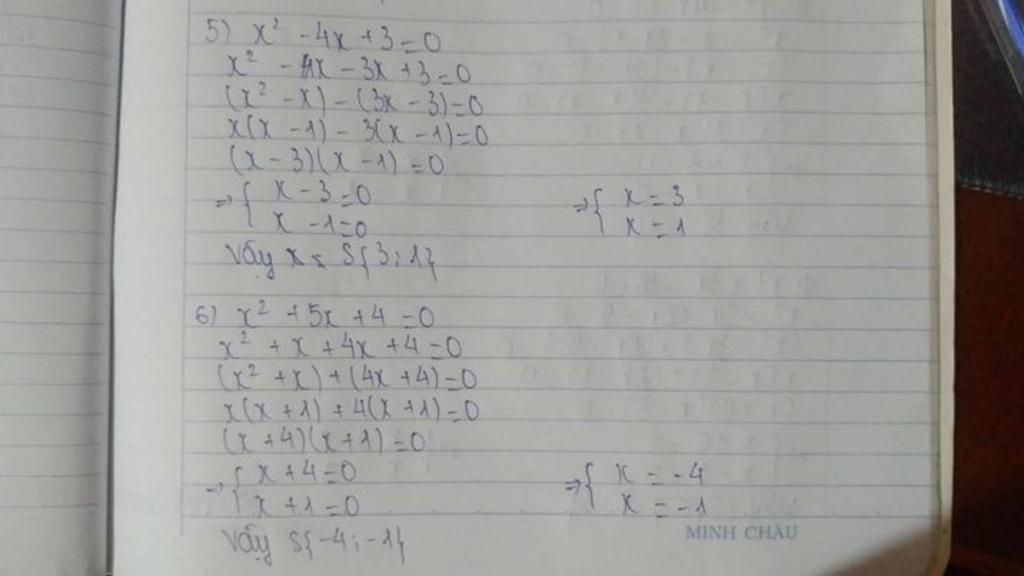 5) x² - 4x + 3 = 0
x² - x - 3x + 3 = 0
(x² - x) - (3x - 3) = 0
x(x - 1) - 3(x - 1) = 0
(x - 3)(x - 1) = 0
⇒ { x - 3 = 0 ⇒ { x = 3
x - 1 = 0 x = 1
Vậy x = S{3; 1}
6) x² + 5x + 4 = 0
x² + x + 4x + 4 = 0
(x² + x) + (4x + 4) = 0
x(x + 1) + 4(x + 1) = 0
(x + 4)(x + 1) = 0
⇒ { x + 4 = 0 ⇒ { x = -4
x + 1 = 0 x = -1
Vậy S{-4; -1}
MINH CHÂU